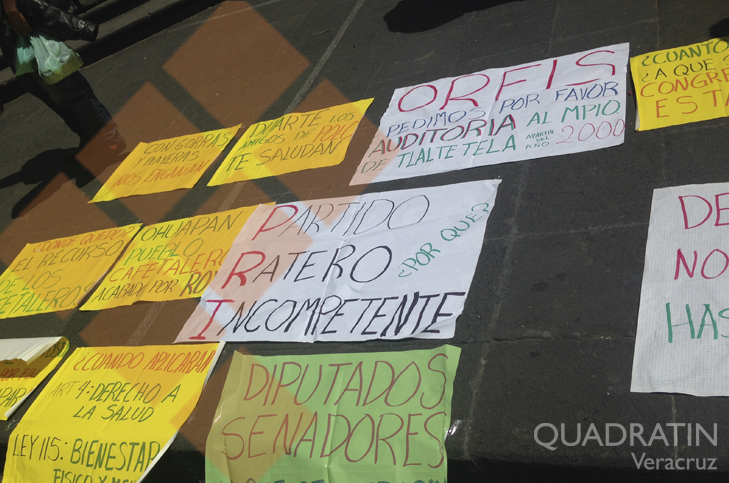 CON GORRAS
Y PLAYERAS
NOS ENGAÑAN
DUARTE LOS
AMIGOS DE
TE SALUDAN
ORFIS
PEDIMOS POR FAVOR
AUDITORIA AL MPIO
DE TLALTETELA APARTIR DEL AÑO 2000
¿CUANTO
¿A QUE
CONGRE
ESTA
¿DONDE
EL RECURSO
DE LOS
CAFETALEROS
OHUAPAN
PUEBLO
CAFETALERO
ACAPADA POR RO
PARTIDO
RATERO ¿POR QUE?
INCOMPETENTE
DE
NO
HAS
¿CUANDO APLICARAN
ART 4: DERECHO A
LA SALUD
LEY 115: BIENESTAR
FISICO Y
DIPUTADOS
SENADORES
QUADRATIN
Veracruz